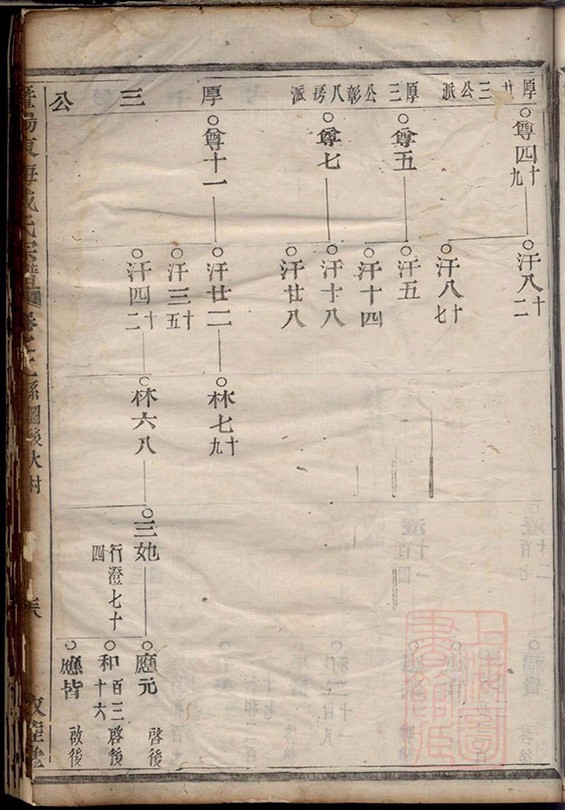 厚廿三公派
厚三公彰八房派
厚三公
尊四十九
尊五
尊七
尊十一
汗八十二
汗八十七
汗五
汗十四
汗十八
汗廿八
汗廿二
汗三十五
汗四十二
林七十九
林六八
三她
行澄七十四
應元 啓後
和百三十六 啓後
應皆 啟後
暨陽東海戚氏宗譜
上海圖書館藏